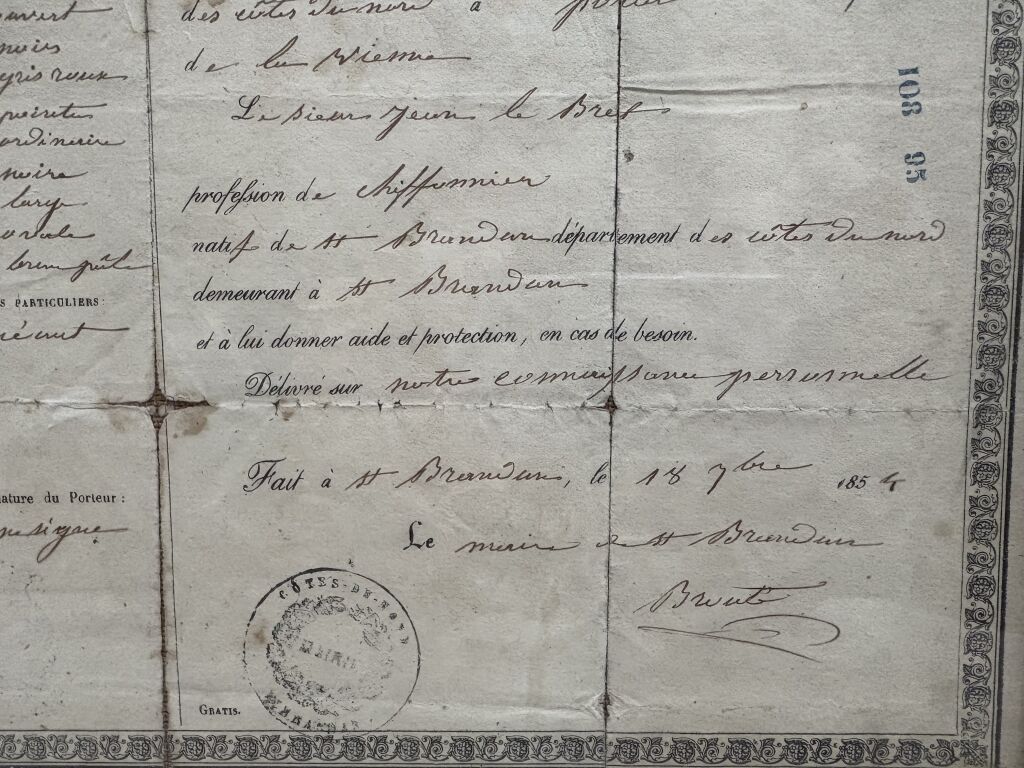 ouvert
noirs
gris roux
ordinaire
noire
large
ovale
brun pâle
S PARTICULIERS:
néant
nature du Porteur :
ne signe
des côtes du nord à
de la Vienne
Le sieur jean le Bret
profession de chiffonnier
natif de St Brandan département des côtes du nord
demeurant à St Brandan
et à lui donner aide et protection, en cas de besoin.
Délivré sur notre connaissance personnelle
Fait à St Brandan, le 18 7bre 1854
Le maire de St Brandan
CÔTES-DU-NORD
MAIRIE
GRATIS.
108 95